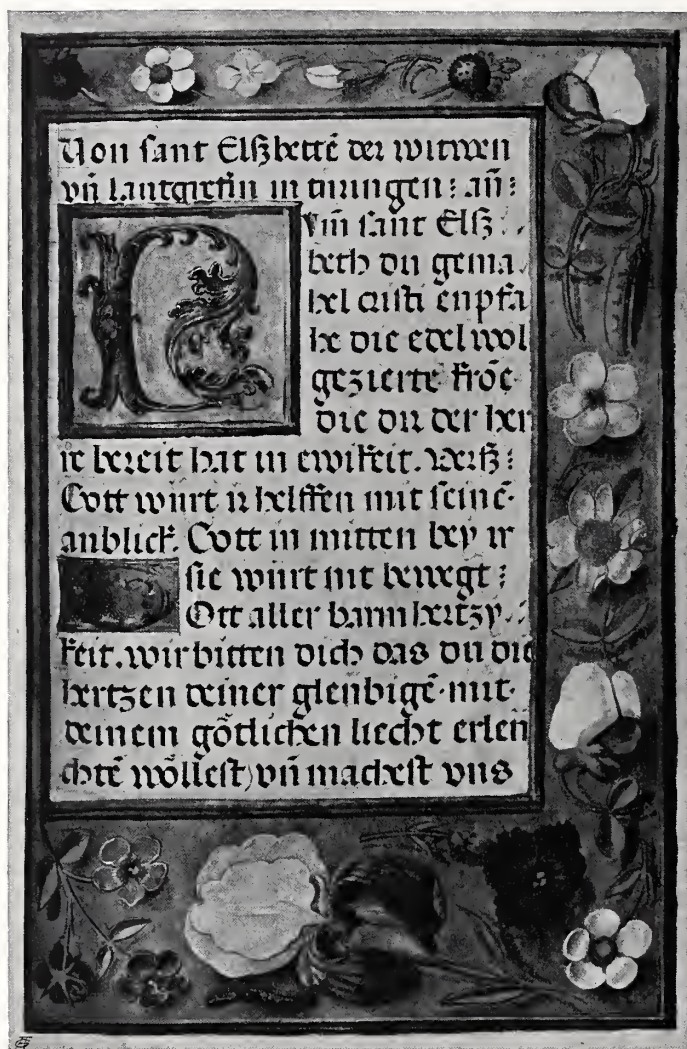 Von sant Elßbettē der witwen
vn̄ lantgrefin in turingen : an̄ :
KVm̄ sant Elß..
beth du gema.
hel cristi enpfa
he die edel wol
gezierte krōe
die dir der her
re bereit hat in ewikeit. verß :
Gott würt ir helffen mit seinē.
anblick. Gott in mitten bey ir
sie würt nit bewegt :
GOtt aller barmhertzy..
keit. wir bitten dich das du die
hertzen deiner gleubigē. mit.
deinem götlichen liecht erleu
chtē wöllest) vn̄ machest vns